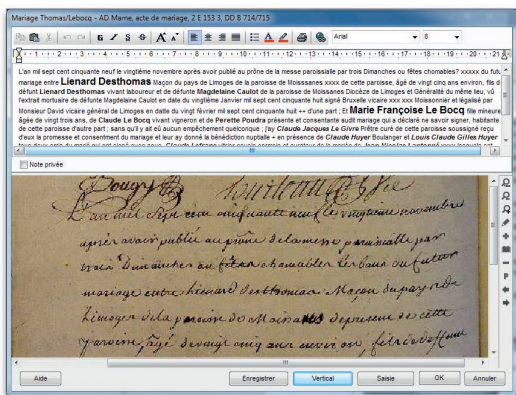 Mariage Thomas/Lebocq - AD Marne, acte de mariage, 2 E 153 3, DD B 714/715
G I S S A A Arial 8
1 2 3 4 5 6 7 8 9 10 11 12 13 14 15 16 17 18 19 20 21
L'an mil sept cent cinquante neuf le vingtième novembre après avoir publié au prône de la messe paroissiale par trois Dimanches ou fêtes chomables? xxxxx du futu
mariage entre Lienard Desthomas Maçon du pays de Limoges de la paroisse de Moissanes xxxx de cette paroisse, âgé de vingt cinq ans environ, fils d
défunt Lienard Desthomas vivant laboureur et de défunte Magdelaine Caulot de la paroisse de Moissanes Diocèze de Limoges et Généralité du même lieu, vû
l'extrait mortuaire de défunte Magdelaine Caulot en date du vingtième Janvier mil sept cent cinquante huit signé Bruxelle vicaire xxx xxx Moissonnier et légalisé par
Monsieur David vicaire général de Limoges en datte du vingt février mil sept cent cinquante huit ++ d'une part ; Et Marie Françoise Le Bocq fille mineure
âgée de vingt trois ans, de Claude Le Bocq vivant vigneron et de Perette Poudra présente et consentante audit mariage qui a déclaré ne savoir signer, habitante
de cette paroisse d'autre part ; sans qu'il y ait eû aucun empêchement quelconque ; j'ay Claude Jacques Le Givre Prêtre curé de cette paroisse soussigné reçu
d'eux la promesse et consentement du mariage et leur ay donné la bénédiction nuptialle + en présence de Claude Huyer Boulanger et Louis Claude Gilles Huyer
Note privée
L'an mil sept cent cinquante neuf le vingtième novembre
après avoir publié au prône de la messe paroissialle par
trois Dimanches ou fêtes chomables les bans du futur
mariage entre Lienard desthomas Maçon du pays de
Limoges de la paroisse de Moissanes de present de cette
paroisse, âgé de vingt cinq ans environ fils de deffunt
Aide Enregistrer Vertical Saisie OK Annuler